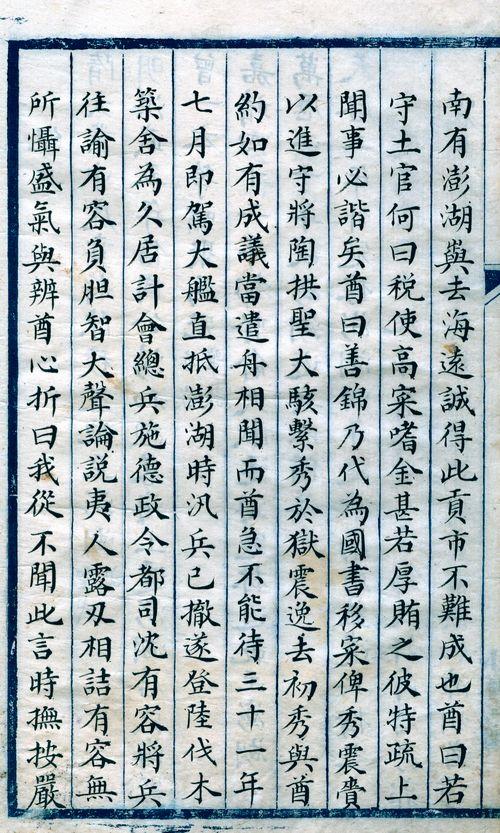 南有澎湖與去海遠誠得此貢市不難成也酋曰若
守土官何曰税使高寀嗜金甚若厚賄之彼特疏上
聞事必諧矣酋曰善錦乃代為國書移寀俾秀震賫
以進守將陶拱聖大駭繫秀於獄震逸去初秀與酋
約如有成議當遣舟相聞而酋急不能待三十一年
七月即駕大艦直抵澎湖時汛兵已撤遂登陸伐木
築舍為久居計會總兵施德政令都司沈有容將兵
往諭有容負胆智大聲論説夷人露刃相詰有容無
所懾盛氣與辨酋心折曰我從不聞此言時撫按嚴